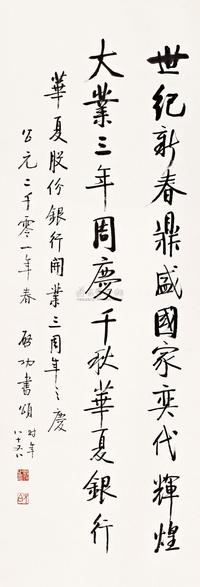 世纪新春鼎盛國家奕代輝煌
大業三年周慶千秋華夏銀行
華夏股份銀行開業三周年之慶
公元二千零一年春 啓功書頌 时年八十又八